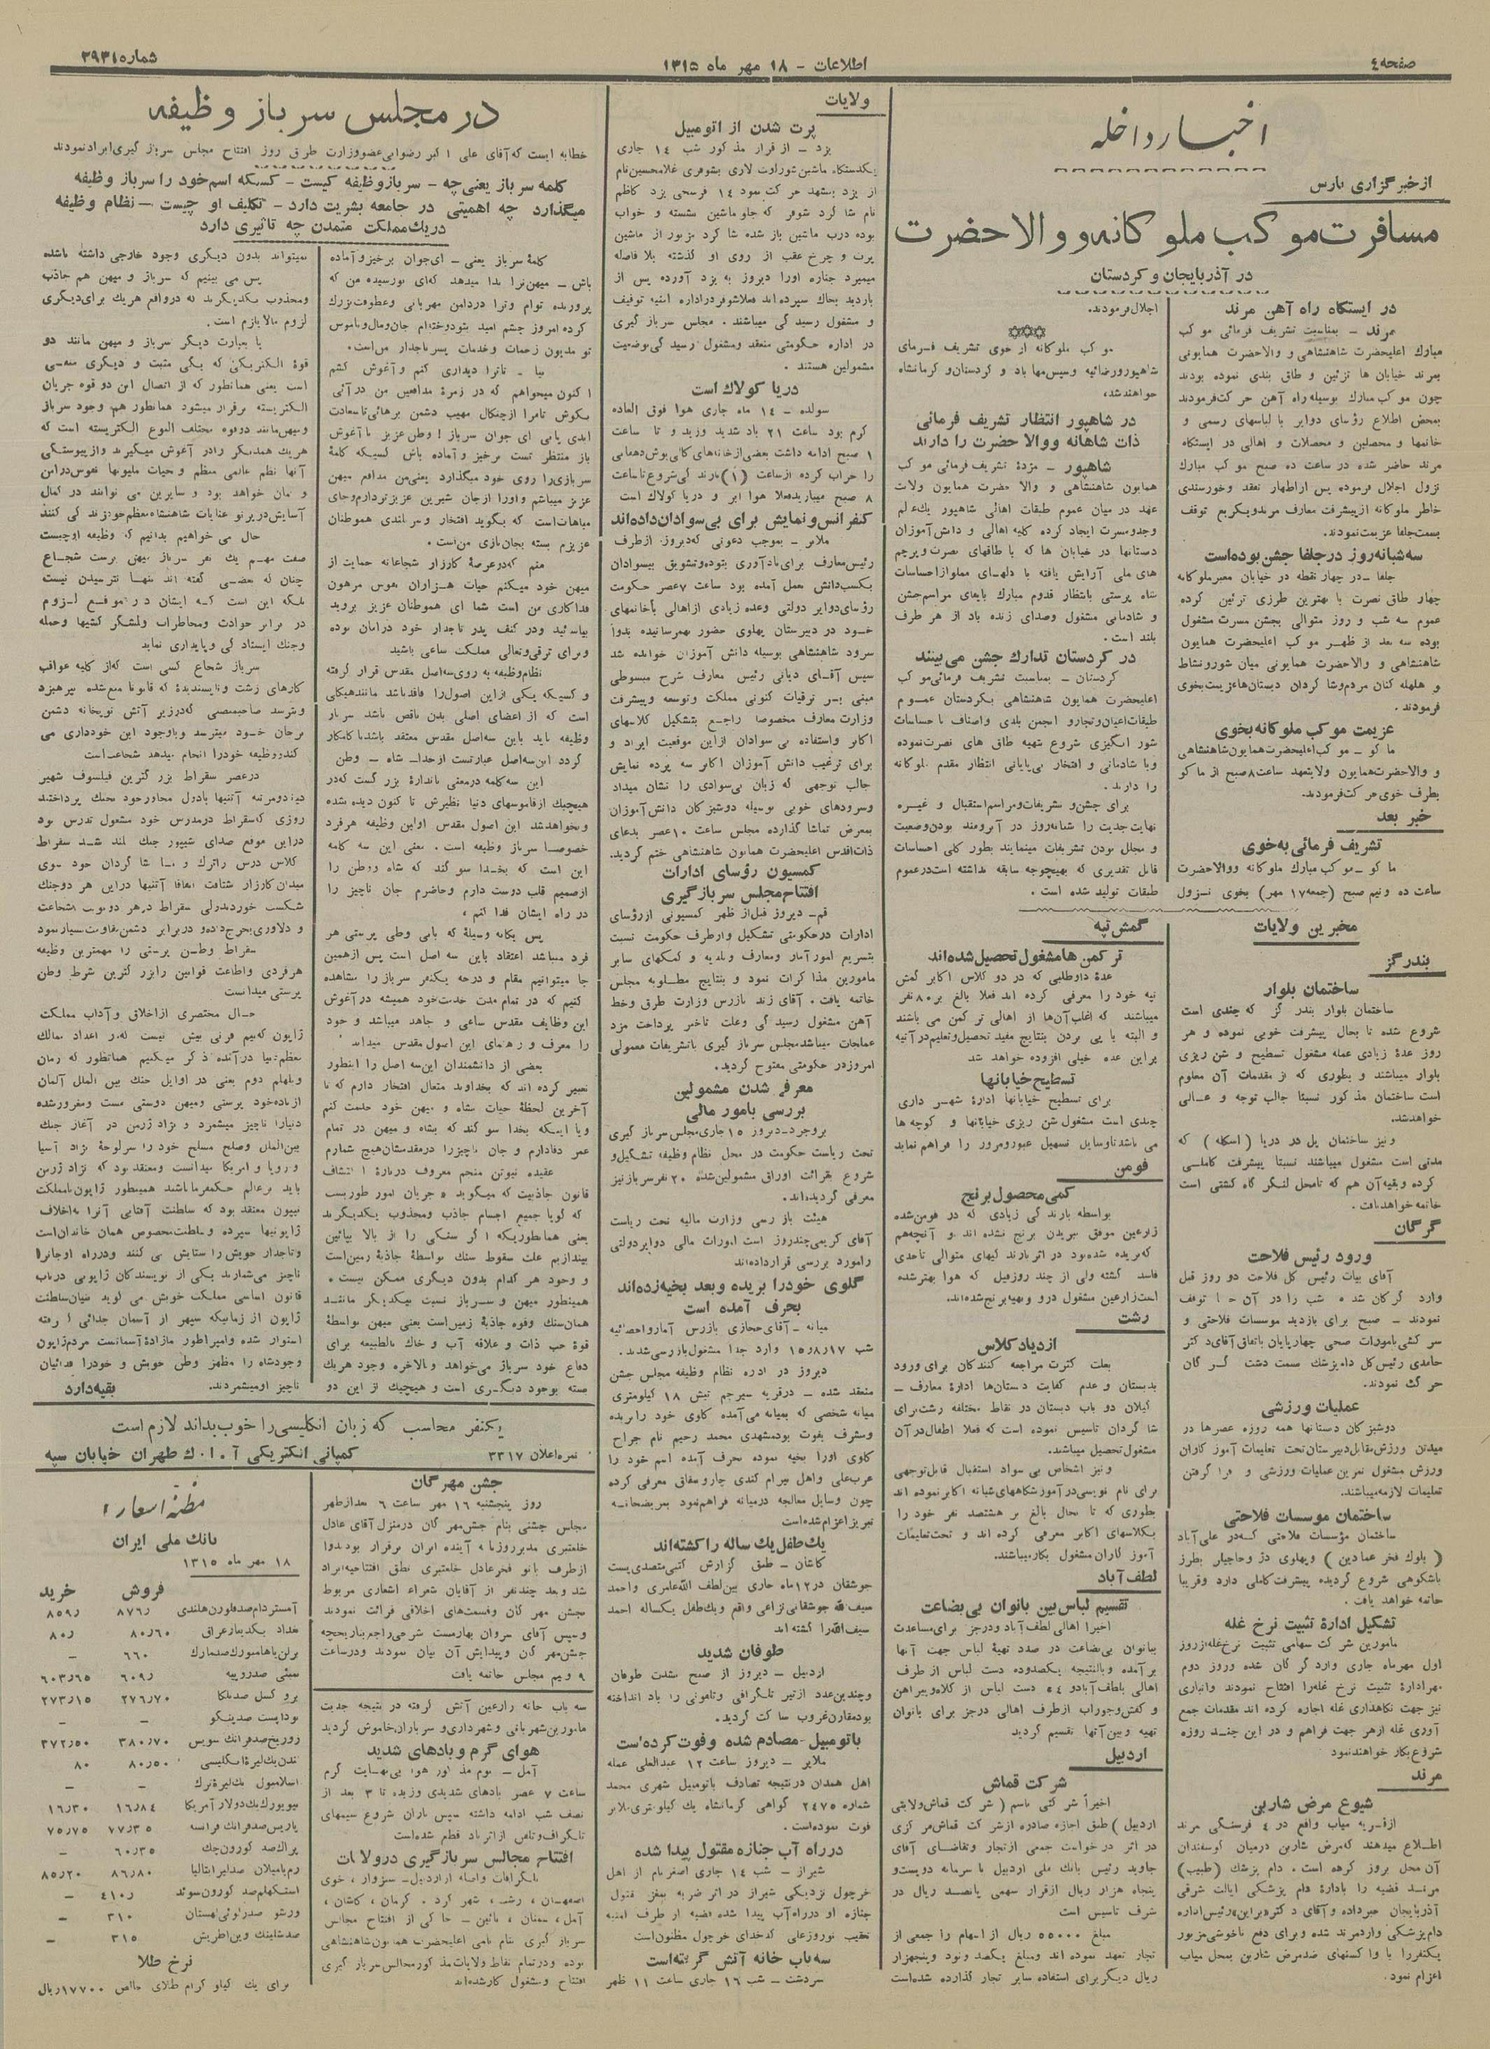 صفحه ٤
اطلاعات - ١٨ مهر ماه ١٣١٥
شماره ٣٩٣١
اخبار داخله
از خبرگزاری پارس
مسافرت موکب ملوکانه و والاحضرت
در آذربایجان و کردستان
در ایستگاه راه آهن مرند
مرند - بمناسبت تشریف فرمائی موکب
مبارک اعلیحضرت شاهنشاهی و والاحضرت همایونی
بمرند خیابان ها تزئین و طاق بندی نموده بودند
چون موکب مبارک بوسیله راه آهن حرکت فرمودند
بمحض اطلاع رؤسای دوایر با لباسهای رسمی و
خانمها و محصلین و محصلات و اهالی در ایستگاه
مرند حاضر شده در ساعت ده صبح موکب مبارک
نزول اجلال فرموده پس از اظهار تفقد و خورسندی
خاطر ملوکانه از پیشرفت معارف مرند و یکربع توقف
بسمت جلفا عزیمت نمودند.
سه شبانه روز در جلفا جشن بوده است
جلفا - در چهار نقطه در خیابان معبر ملوکانه
چهار طاق نصرت با بهترین طرزی تزئین کرده
عموم سه شب و روز متوالی بجشن مسرت مشغول
بوده سه بعد از ظهر موکب اعلیحضرت همایون
شاهنشاهی و والاحضرت همایونی میان شور و نشاط
و هلهله کنان مردم و شاگردان دبستان ها عزیمت بخوی
فرمودند.
عزیمت موکب ملوکانه بخوی
ماکو - موکب اعلیحضرت همایون شاهنشاهی
و والاحضرت همایون ولایتعهد ساعت ٨ صبح از ماکو
بطرف خوی حرکت فرمودند.
خبر بعد
تشریف فرمائی به خوی
ماکو - موکب مبارک ملوکانه و والاحضرت
ساعت ده و نیم صبح (جمعه ١٧ مهر) بخوی نزول
اجلال فرمودند.
موکب ملوکانه از خوی تشریف فرمای
شاهپور و رضائیه و سپس مهاباد و کردستان و کرمانشاه
خواهند شد.
در شاهپور انتظار تشریف فرمائی
ذات شاهانه و والاحضرت را دارند
شاهپور - مژدهٔ تشریف فرمائی موکب
همایون شاهنشاهی و والاحضرت همایون ولایت
عهد در میان عموم طبقات اهالی شاهپور یک عالم
وجد و مسرت ایجاد کرده کلیه اهالی و دانش آموزان
دبستانها در خیابان ها که با طاقهای نصرت و پرچم
های ملی آرایش یافته با دلهای مملو از احساسات
شاه پرستی بانتظار قدوم مبارک بایفای مراسم جشن
و شادمانی مشغول وصدای زنده باد از هر طرف
بلند است.
در کردستان تدارک جشن می بینند
کردستان - بمناسبت تشریف فرمائی موکب
اعلیحضرت همایون شاهنشاهی بکردستان عموم
طبقات اعیان و تجار و انجمن بلدی و اصناف با حساسات
شور انگیزی شروع بتهیه طاق های نصرت نموده
و با شادمانی و افتخار بی پایانی انتظار مقدم ملوکانه
را دارند.
برای جشن و تشریفات و مراسم استقبال و غیره
نهایت جدیت را شبانه روز در آبرومند بودن وضعیت
و مجلل بودن تشریفات مینمایند بطور کلی احساسات
قابل تقدیری که بهیچوجه سابقه نداشته است در عموم
طبقات تولید شده است.
مخبرین ولایات
بندرگز
ساختمان بلوار
ساختمان بلوار بندر گز که چندی است
شروع شده تا بحال پیشرفت خوبی نموده و هر
روز عدهٔ زیادی عمله مشغول تسطیح و شن ریزی
بلوار میباشند و بطوری که از مقدمات آن معلوم
است ساختمان مذکور نسبتا جالب توجه و عالی
خواهد شد.
و نیز ساختمان پل در دریا (اسکله) که
مدتی است مشغول میباشند نسبتا پیشرفت کاملی
کرده و بقیه آن هم که تا محل لنگر گاه کشتی است
خاتمه خواهد یافت.
گرگان
ورود رئیس فلاحت
آقای بیات رئیس کل فلاحت دو روز قبل
وارد گرگان شده شب را در آن جا توقف
نمودند - صبح برای بازدید موسسات فلاحتی و
سرکشی بامورات صحی چهارپایان باتفاق آقای دکتر
حامدی رئیس کل دام پزشک سمت دشت گرگان
حرکت نمودند.
عملیات ورزشی
دوشیزگان دبستانها همه روزه عصرها در
میدان ورزش مقابل دبیرستان تحت تعلیمات آموزگاران
ورزش مشغول تمرین عملیات ورزشی و فرا گرفتن
تعلیمات لازمه میباشند.
ساختمان موسسات فلاحتی
ساختمان مؤسسات فلاحتی که در علی آباد
(بلوک فخر عمادین) و پهلوی دژ و حاجیلر بطرز
باشکوهی شروع گردیده پیشرفت کاملی دارد و قریبا
خاتمه خواهد یافت.
تشکیل ادارهٔ تثبیت نرخ غله
مامورین شرکت سهامی تثبیت نرخ غله از روز
اول مهر ماه جاری وارد گرگان شده و روز دوم
مهر ادارهٔ تثبیت نرخ غله را افتتاح نمودند و انباری
نیز جهت نگاهداری غله اجاره کرده اند مقدمات جمع
آوری غله از هر جهت فراهم و در این چند روزه
شروع بکار خواهند نمود
مرند
شیوع مرض شاربن
از قریه میاب واقع در ٤ فرسنگی مرند
اطلاع میدهند که مرض شاربن درمیان گوسفندان
آن محل بروز کرده است. دام پزشک (طبیب)
مرند قضیه را بادارهٔ دام پزشکی ایالت شرقی
آذربایجان خبر داده و آقای دکتر براین رئیس اداره
دام پزشکی وارد مرند شده و برای دفع ناخوشی مزبور
یکنفر را با واکسنهای ضد مرض شاربن بمحل میاب
اعزام نمود.
گمش تپه
ترکمن ها مشغول تحصیل شده اند
عدهٔ داوطلبی که در دو کلاس اکابر گمش
تپه خود را معرفی کرده اند فعلا بالغ بر ٨٠ نفر
میباشند که اغلب آن ها از اهالی ترکمن می باشند
و البته با پی بردن بنتایج مفید تحصیل و تعلیم در آتیه
براین عده خیلی افزوده خواهد شد
تسطیح خیابانها
برای تسطیح خیابانها ادارهٔ شهر داری
چندی است مشغول شن ریزی خیابانها و کوچه ها
می باشد تا وسایل تسهیل عبور و مرور را فراهم نماید
فومن
کمی محصول برنج
بواسطه بارندگی زیادی که در فومن شده
زارعین موفق ببریدن برنج نشده اند و آنچه هم
که بریده شده بود در اثر بارندگیهای متوالی تا حدی
فاسد گشته ولی از چند روز قبل که هوا بهتر شده
است زارعین مشغول درو و بقیه برنج شده اند.
رشت
ازدیاد کلاس
بعلت کثرت مراجعه کنندگان برای ورود
بدبستان و عدم کفایت دبستان ها ادارهٔ معارف -
گیلان دو باب دبستان در نقاط مختلفه رشت برای
شاگردان تاسیس نموده است که فعلا اطفال در آن
مشغول تحصیل میباشند.
و نیز اشخاص بی سواد استقبال قابل توجهی
برای نام نویسی در آموزشگاههای شبانه اکابر نموده اند
بطوری که تا بحال بالغ بر هشتصد نفر خود را
بکلاسهای اکابر معرفی کرده اند و تحت تعلیمات
آموزگاران مشغول بکار میباشند.
لطف آباد
تقسیم لباس بین بانوان بی بضاعت
اخیرا اهالی لطف آباد و درجز برای مساعدت
ببانوان بی بضاعت در صدد تهیه لباس جهت آنها
برآمده و بالنتیجه یکصد و ده دست لباس از طرف
اهالی بلطف آباد و ٥٤ دست لباس از کلاه و پیراهن
و کفش و جوراب از طرف اهالی درجز برای بانوان
تهیه و بین آنها تقسیم گردید
اردبیل
شرکت قماش
اخیراً شرکتی باسم (شرکت قماش ولایتی
اردبیل) طبق اجازه صادره از شرکت قماش مرکزی
در اثر درخواست جمعی از تجار و تقاضای آقای
جاوید رئیس بانک ملی اردبیل با سرمایه دویست و
پنجاه هزار ریال از قرار سهمی پانصد ریال در
شرف تاسیس است
مبلغ ٥٥٠٠٠ ریال از سهام را جمعی از
تجار تعهد نموده اند و مبلغ یکصد و نود و پنجهزار
ریال دیگر برای استفاده سایر تجار گذارده شده است
ولایات
پرت شدن از اتومبیل
یزد - از قرار مذکور شب ١٤ جاری
یکدستگاه ماشین شورلت لاری بشوفری غلامحسین نام
از یزد بمشهد حرکت نمود ١٤ فرسخی یزد کاظم
نام شاگرد شوفر که جلو ماشین نشسته و خواب
بوده درب ماشین باز شده شاگرد مزبور از ماشین
پرت و چرخ عقب از روی او گذشته بلا فاصله
میمیرد جنازه او را دیروز به یزد آورده پس از
بازدید بخاک سپرده اند فعلا شوفر در اداره امنیه توقیف
و مشغول رسیدگی میباشند. مجلس سربازگیری
در اداره حکومتی منعقد و مشغول رسیدگی بوضعیت
مشمولین هستند.
دریا کولاک است
سولده - ١٤ ماه جاری هوا فوق العاده
گرم بود ساعت ٢١ باد شدید وزید و تا ساعت
١ صبح ادامه داشت بعضی از خانه های گالی پوش دهقانی
را خراب کرده از ساعت (١) بارندگی شروع تا ساعت
٨ صبح میبارید فعلا هوا ابر و دریا کولاک است
کنفرانس و نمایش برای بی سوادان داده اند
ملایر - بموجب دعوتی که دیروز از طرف
رئیس معارف برای یادآوری بتوده و تشویق بیسوادان
بکسب دانش بعمل آمده بود ساعت ٧ عصر حکومت
رؤسای دوایر دولتی و عده زیادی از اهالی با خانمهای
خود در دبیرستان پهلوی حضور بهمرسانیده بدوا
سرود شاهنشاهی بوسیله دانش آموزان خوانده شد
سپس آقای دیانی رئیس معارف شرح مبسوطی
مبنی بر ترقیات کنونی مملکت و توسعه و پیشرفت
وزارت معارف مخصوصا راجع بتشکیل کلاسهای
اکابر و استفاده بی سوادان از این موقعیت ایراد و
برای ترغیب دانش آموزان اکابر سه پرده نمایش
جالب توجهی که زیان بی سوادی را نشان میداد
و سرودهای خوبی بوسیله دوشیزگان دانش آموزان
بمعرض تماشا گذارده مجلس ساعت ١٠ عصر بدعای
ذات اقدس اعلیحضرت همایون شاهنشاهی ختم گردید.
کمسیون رؤسای ادارات
افتتاح مجلس سربازگیری
قم - دیروز قبل از ظهر کمسیونی از رؤسای
ادارات در حکومتی تشکیل و از طرف حکومت نسبت
بتسریع امور آمار و معارف و بلدیه و کمکهای سایر
مامورین مذاکرات نمود و بنتایج مطلوبه مجلس
خاتمه یافت. آقای زند بازرس وزارت طرق و خط
آهن مشغول رسیدگی و علت تاخیر پرداخت مزد
عملجات میباشد مجلس سربازگیری با تشریفات معمولی
امروز در حکومتی مفتوح گردید.
معرفی شدن مشمولین
بررسی بامور مالی
بروجرد - دیروز ١٥ جاری مجلس سربازگیری
تحت ریاست حکومت در محل نظام وظیفه تشکیل و
شروع بقرائت اوراق مشمولین شده ٢٠ نفر سرباز نیز
معرفی گردیده اند.
هیئت بازرسی وزارت مالیه تحت ریاست
آقای کریمی چند روز است امورات مالی دوایر دولتی
را مورد بررسی قرار داده اند
گلوی خود را بریده و بعد بخیه زده اند
بحرف آمده است
میانه - آقای حجازی بازرس آمار و احصائیه
شب ١٥ر٨ر١٧ وارد جدا مشغول بازرسی شدند.
دیروز در اداره نظام وظیفه مجلس جشن
منعقد شده - در قریه سیرجم تبش ١٨ کیلومتری
میانه شخصی که بمیانه می آمده گلوی خود را بریده
و مشرف بفوت بوده مشهدی محمد رحیم نام جراح
گلوی او را بخیه نموده بحرف آمده اسم خود را
عرب علی و اهل بیرام کندی چار و سقاق معرفی کرده
چون وسایل معالجه در میانه فراهم نبود بمریضخانه
تبریز اعزام شده است
یک طفل یک ساله را کشته اند
کاشان - طبق گزارش کتبی متصدی پست
جوشقان در ١٢ ماه جاری بین لطف الله عامری و احمد
سیف الله جوشقانی نزاعی واقع و یک طفل یکساله احمد
سیف الله را کشته اند
طوفان شدید
اردبیل - دیروز از صبح بشدت طوفان
و چندین عدد از تیر تلگرافی و تلفونی را باد انداخته
بود مقارن غروب ساکت گردید.
با اتومبیل مصادم شده و فوت کرده است
ملایر - دیروز ساعت ١٢ عبدالعلی عمله
اهل همدان در نتیجه تصادف باتومبیل شهری محمد
شماره ٢٤٧٥ گواهی کرمانشاه یک کیلومتری ملایر
فوت نموده است.
در راه آب جنازه مقتول پیدا شده
شیراز - شب ١٤ جاری اصغر نام از اهل
خرچول نزدیکی شیراز در اثر ضربه بمغز مقتول
جنازه او در راه آب پیدا شده قضیه از طرف امنیه
تعقیب نوروز علی کدخدای خرچول مظنون است
سه باب خانه آتش گرفته است
سردشت - شب ١٦ جاری ساعت ١١ ظهر
در مجلس سرباز وظیفه
خطابه ایست که آقای علی اکبر رضوانی عضو وزارت طرق روز افتتاح مجلس سربازگیری ایراد نمودند
کلمه سرباز یعنی چه - سرباز وظیفه کیست - کسیکه اسم خود را سرباز وظیفه
میگذارد چه اهمیتی در جامعه بشریت دارد - تکلیف او چیست - نظام وظیفه
در یک مملکت متمدن چه تاثیری دارد
کلمهٔ سرباز یعنی - ای جوان برخیز و آماده
باش - میهن ترا ندا میدهد که ای نورسیده من که
پرورده توام و ترا در دامن مهربانی و عطوفت بزرگ
کرده امروز چشم امید بتو دوخته ام جان و مال و ناموس
تو مدیون زحمات و خدمات پسر تاجدار من است.
بیا - تا ترا دیداری کنم و آغوش کشم
اکنون میخواهم که در زمرهٔ مدافعین من در آئی
بکوش تا مرا از چنگال مهیب دشمن برهانی تا سعادت
ابدی یابی ای جوان سرباز! وطن عزیز با آغوش
باز منتظر تست برخیز و آماده باش کسیکه کلمهٔ
سربازی را روی خود میگذارد یعنی من مدافع میهن
عزیز میباشم و او را از جان شیرین عزیزتر دارم و جای
مباهات است که بگوید افتخار و سربلندی هموطنان
عزیزم بسته بجان بازی من است.
منم که در عرصهٔ کارزار شجاعانه حمایت از
میهن خود میکنم حیات هزاران نفوس مرهون
فداکاری من است شما ای هموطنان عزیز بروید
بیاسائید و در کنف پدر تاجدار خود در امان بوده
و برای ترقی و تعالی مملکت ساعی باشید
نظام وظیفه به روی سه اصل مقدس قرار گرفته
و کسیکه یکی از این اصول را فاقد باشد مانند هیکلی
است که از اعضای اصلی بدن ناقص باشد سرباز
وظیفه باید باین سه اصل مقدس معتقد باشد تا کامکار
گردد این سه اصل عبارتست از خدا - شاه - وطن
این سه کلمه در معنی باندازهٔ بزرگست که در
هیچیک از قاموسهای دنیا نظیرش تا کنون دیده نشده
و نخواهد شد این اصول مقدس اولین وظیفه هر فرد
خصوصا سرباز وظیفه است. معنی این سه کلمه
این است که بخدا سوگند که شاه و وطن را
از صمیم قلب دوست دارم و حاضرم جان ناچیز را
در راه ایشان فدا کنم.
پس یگانه وسیله که بانی وطن پرستی هر
فرد میباشد اعتقاد باین سه اصل است پس از همین
جا میتوانیم مقام و درجه یکنفر سرباز را مشاهده
کنیم که در تمام مدت خدمت خود همیشه در آغوش
این وظایف مقدس ساعی و جاهد میباشد و خود
را معرف و رهنمای این اصول مقدس میداند
بعضی از دانشمندان این سه اصل را اینطور
تعبیر کرده اند که بخداوند متعال افتخار دارم که تا
آخرین لحظهٔ حیات بشاه و میهن خود خدمت کنم
و یا اینکه بخدا سوگند که بشاه و میهن در تمام
عمر وفادارم و جان ناچیز را در مقدمشان هیچ شمارم
عقیده نیوتن منجم معروف در بارهٔ اکتشاف
قانون جاذبیت که میگوید جریان امور طوریست
که گویا جمیع اجسام جاذب و مجذوب یکدیگرند
یعنی همانطوریکه اگر سنگی را از بالا بپائین
بیندازیم علت سقوط سنگ بواسطهٔ جاذبهٔ زمین است
و وجود هر کدام بدون دیگری ممکن نیست.
همینطور میهن و سرباز نسبت بیکدیگر مانند
همان سنگ و قوه جاذبهٔ زمین است یعنی میهن بواسطهٔ
قوهٔ حب ذات و علاقه آب و خاک بالطبیعه برای
دفاع خود سرباز می خواهد و بالاخره وجود هریک
بسته بوجود دیگری است و هیچیک از این دو
نمیتواند بدون دیگری وجود خارجی داشته باشد
پس می بینیم که سرباز و میهن هم جاذب
و مجذوب یکدیگرند که در واقع هریک برای دیگری
لزوم مالایلزم است.
یا بعبارت دیگر سرباز و میهن مانند دو
قوهٔ الکتریکی که یکی مثبت و دیگری منفی
است یعنی همانطور که از اتصال این دو قوه جریان
الکتریسته برقرار میشود همانطور هم وجود سرباز
و میهن مانند دو قوه مختلف النوع الکتریسته است که
هریک همدیگر را در آغوش میگیرند و از پیوستگی
آنها نظم عالمی منظم و حیات ملیونها نفوس در امن
و امان خواهد بود و سایرین می توانند در کمال
آسایش در پرتو عنایات شاهنشاه معظم خود زندگی کنند
حال می خواهیم بدانیم که وظیفه او چیست
صفت مهم یک نفر سرباز میهن پرست شجاع
چنان که بعضی گفته اند تنها نترسیدن نیست
بلکه این است که ایشان در موقع لزوم
در برابر حوادث و مخاطرات و لشگرکشیها و حمله
و جنگ ایستادگی و پایداری نماید
سرباز شجاع کسی است که از کلیه عواقب
کارهای زشت و ناپسندیدهٔ که قانونا منع شده بپرهیزد
و بترسد صاحبمنصبی که در زیر آتش توپخانه دشمن
برجان خود میترسد و باوجود این خودداری می
کند و وظیفه خود را انجام میدهد شجاعت است
در عصر سقراط بزرگترین فیلسوف شهیر
دنیا در مرتبه آتنیها بادول مجاور خود بجنگ پرداختند
روزی که سقراط در مدرس خود مشغول تدریس بود
در این موقع صدای شیپور جنگ بلند شد سقراط
کلاس درس را ترک و با شاگردان خود بسوی
میدان کارزار شتافت اتفاقا آتنیها در این هر دو جنگ
شکست خوردند ولی سقراط در هر دو نوبت شجاعت
و دلاوری بخرج داده و در برابر دشمن مقاومت بسیار نمود
سقراط وطن پرستی را مهمترین وظیفه
هر فردی و اطاعت قوانین را بزرگترین شرط وطن
پرستی میدانست
حال مختصری از اخلاق و آداب مملکت
ژاپون که نیم قرنی بیش نیست که در اعداد ممالک
معظم دنیا درآمده ذکر میکنیم همانطور که زمان
ویلهلم دوم یعنی در اوایل جنگ بین الملل آلمان
از باده خود پرستی و میهن دوستی مست و مغرور شده
دنیا را ناچیز میشمرد و نژاد ژرمن در آغاز جنگ
بین الملل و صلح مسلح خود را سرلوحهٔ نژاد آسیا
و اروپا و امریکا میدانست و معتقد بود که نژاد ژرمن
باید برعالم حکمفرما باشند همینطور ژاپون یا مملکت
نیپون معتقد بود که سلطنت آفتابی آنرا به اخلاف
ژاپونیها سپرده و سلطنت مخصوص همان خاندان است
و تاجدار خویش را ستایش می کنند و در راه او جان را
ناچیز می شمارند یکی از نویسندگان ژاپونی در باب
قانون اساسی مملکت خویش می گوید بنیان سلطنت
ژاپون از زمانیکه سپهر از آسمان جدائی گرفته
استوار شده و امپراطور ما زادهٔ آسمانست مردم ژاپون
وجود شاه را مظهر وطن خویش و خود را فدائیان
ناچیز او میشمردند.
بقیه دارد
یکنفر محاسب که زبان انگلیسی را خوب بداند لازم است
نمره اعلان ٣٣١٧
کمپانی الکتریکی آ. ا. گ طهران خیابان سپه
جشن مهرگان
روز پنجشنبه ١٦ مهر ساعت ٦ بعد از ظهر
مجلس جشنی بنام جشن مهرگان در منزل آقای عادل
خلعتبری مدیر روزنامه آینده ایران برقرار بود بدوا
از طرف بانو فخر عادل خلعتبری نطق افتتاحیه ایراد
شد و بعد چند نفر از آقایان شعراء اشعاری مربوط
بجشن مهرگان و قسمتهای اخلاقی قرائت نمودند
و سپس آقای سروان بهارمست شرحی راجع بتاریخچه
جشن مهرگان و پیدایش آن بیان نمودند و در ساعت
٩ و نیم مجلس خاتمه یافت
سه باب خانه زارعین آتش گرفته در نتیجه جدیت
مامورین شهربانی و شهرداری و سربازان خاموش گردید
هوای گرم و بادهای شدید
آمل - یوم مذکور هوا بی نهایت گرم
ساعت ٧ عصر بادهای شدیدی وزیده تا ٣ بعد از
نصف شب ادامه داشته سپس باران شروع سیمهای
تلگراف و تلفن از اثر باد قطع شده است
افتتاح مجالس سربازگیری در ولایات
تلگرافات واصله از اردبیل - سبزوار، خوی
اصفهان، رشت، شهرکرد. کرمان، کاشان،
آمل، سمنان، نائین - حاکی از افتتاح مجالس
سربازگیری بنام نامی اعلیحضرت همایون شاهنشاهی
بوده و در تمام نقاط ولایات مذکور مجالس سربازگیری
افتتاح و مشغول کار شده اند
مظنهٔ اسعار
بانک ملی ایران
١٨ مهر ماه ١٣١٥
فروش خرید
آمستردام صد فلورن هلندی ٨٧٦ر ٨٥٩ر
بغداد یکدینار عراق ٨٠ر٦٠ ٨٠ر
برلن یا هامبورگ صد مارک ٦٦٠ -
بمبئی صد روپیه ٦٠٩ر ٦٠٣ر٦٥
بروکسل صد بلگا ٢٧٦ر٧٠ ٢٧٣ر١٥
بوداپست صد پنگو - -
زوریخ صد فرانک سویس ٣٨٠ر٧٠ ٣٧٢ر٥٠
لندن یک لیرهٔ انگلیسی ٨٠ر٥٠ ٨٠
اسلامبول یک لیرهٔ ترک - -
نیویورک یک دولار آمریکا ١٦ر٨٤ ١٦ر٣٠
پاریس صد فرانک فرانسه ٧٧ر٣٥ ٧٥ر٧٥
پراک صد کورون چک ٦٠ر٣٥ -
رم یا میلان صد لیر ایتالیا ٨٦ر٨٠ ٨٥ر٢٠
استکهلم صد کورون سوئد ٤١٠ر -
ورشو صد زلوتی لهستان ٣١٠ -
صد شلینگ وین اطریش ٣١٥ -
نرخ طلا
برای یک کیلو گرام طلای خالص ١٧٧٠٠ ریال